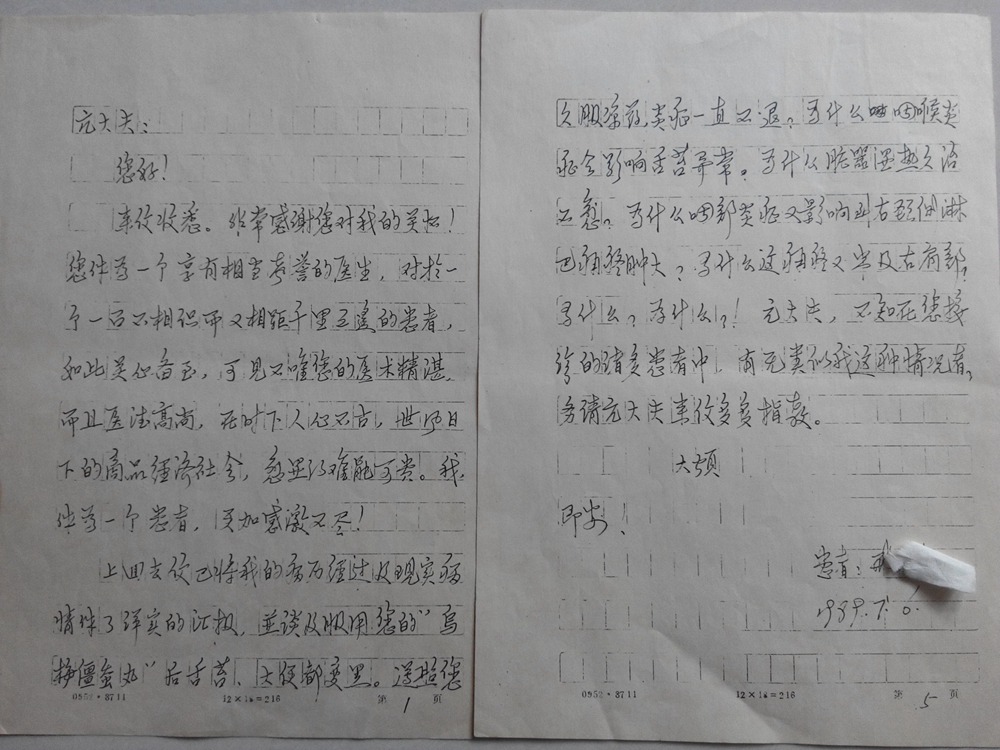 亢大夫：
您好！
来信收悉。非常感谢您对我的关心！
您作为一个享有相当声誉的医生，对于一
个一百不相识而又相距千里之遥的患者，
如此关心备至，可见不唯您的医术精湛，
而且医德高尚，在时下人心不古，世风日
下的商品经济社会，愈显得难能可贵。我
作为一个患者，更加感激不尽！
上回去信已将我的病历经过及现实病
情作了详实的汇报，並谈及服用您的“乌
梅僵蚕丸”后舌苔、大便都变黑。遵照您
0952·8711
12×18=216
第 1 页
久服凉药炎症一直不退？为什么咽喉炎
症会影响舌苔异常。为什么脏器湿热久治
不愈？为什么咽部炎症又影响到右颈侧淋
巴
肿大？为什么这
又出及右肩部？
为什么？为什么？！亢大夫，不知在您接
诊的诸多患者中，有无类似我这种情况者，
务请亢大夫来信多多指教。
大颂
即安、
患者：
1989.7.
0952·8711
12×18=216
第 5 页